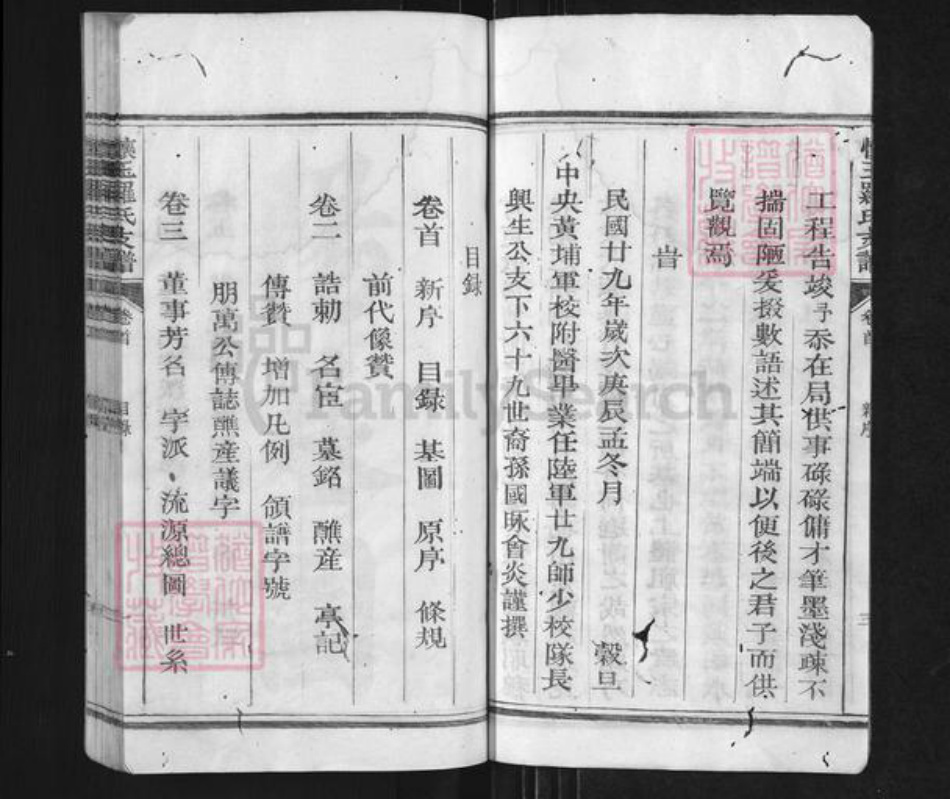 懷玉羅氏支譜
卷首
新序
三
工程告竣予忝在局供事碌碌傭才筆墨淺疎不
揣固陋爰掇數語述其簡端以便後之君子而供
覽觀焉
旹
民國廿九年歲次庚辰孟冬月 穀旦
中央黃埔軍校附醫畢業任陸軍廿九師少校隊長
興生公支下六十九世裔孫國咏會炎謹撰
目錄
卷首 新序 目錄 基圖 原序 條規
前代像贊
卷二 誥勅 名宦 墓銘 醮産 亭記
傳贊 增加凡例 領譜字號
朋萬公傳誌醮産議字
卷三 董事芳名 字派 流源總圖 世系
懷玉羅氏支譜
卷首
目錄
FamilySearch